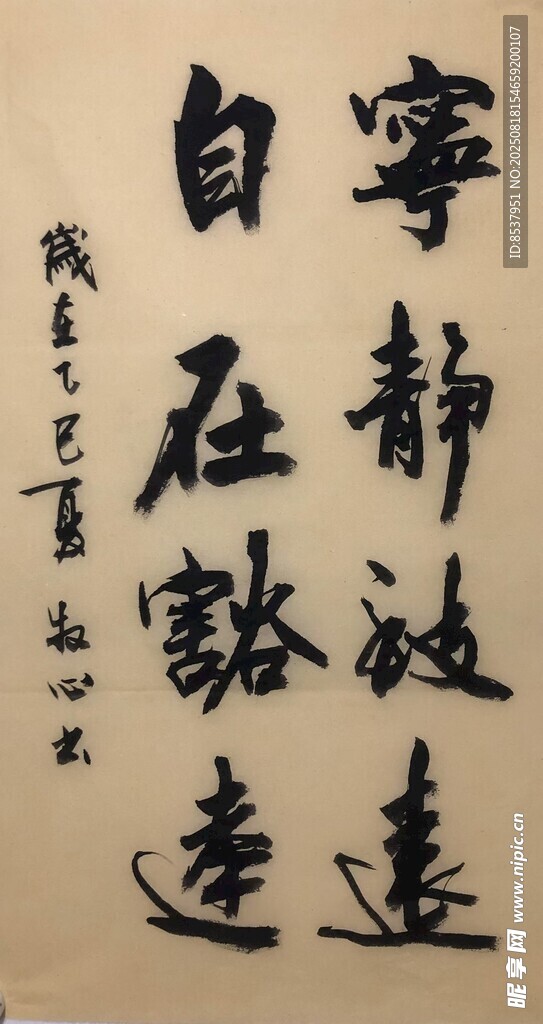 寧静致遠
自在豁達
歲在乙巳夏 牧心书
ID:8537951 NO:20250818154659200107
昵享网 www.nipic.cn